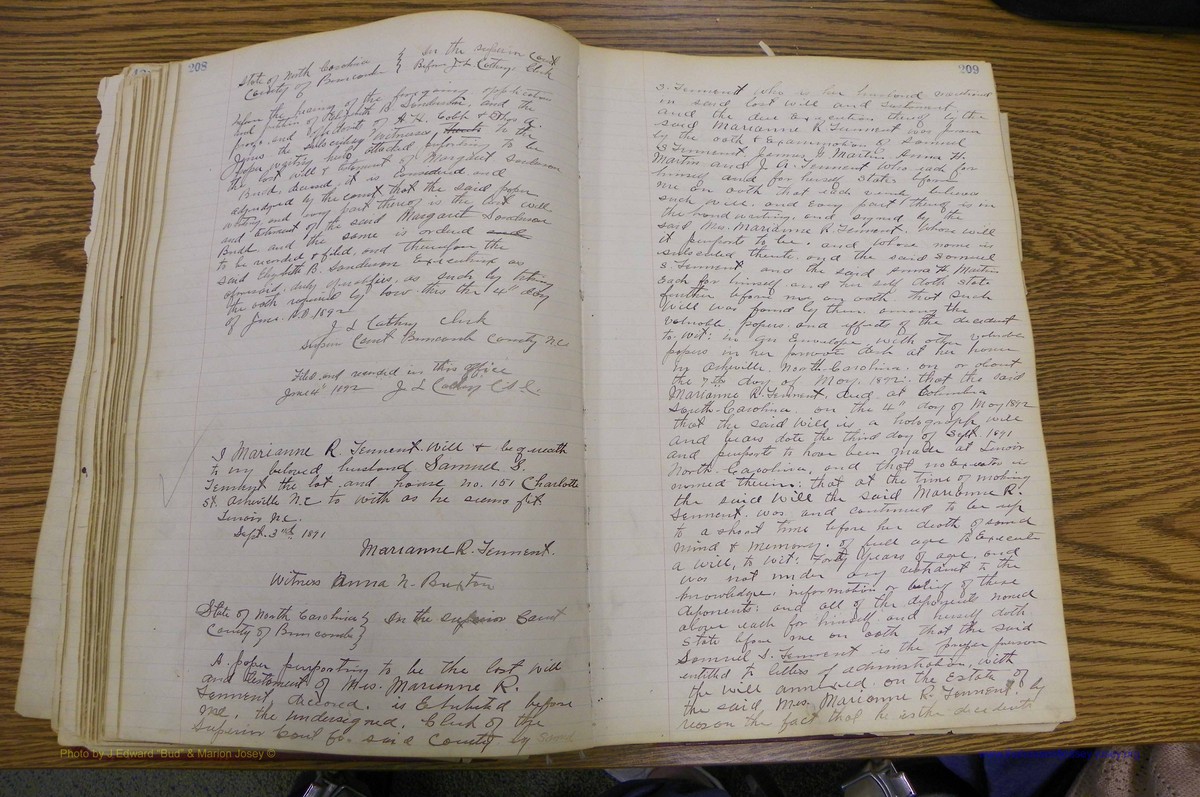 208
State of North Carolina } In the Superior Court
County of Buncombe } Before J L Cathey Clerk
Before the hearing of the foregoing application
and petition of Elizabeth B. Sanderson, and the
proofs and affidavits of A. H. Cobb &
the subscribing witnesses to the
paper writing hereto attached purporting to be
the last will & testament of Margaret Sanderson
Budd, deceased, it is considered and
adjudged by the court that the said paper
writing and every part thereof is the last will
and testament of the said Margaret Sanderson
Budd and the same is ordered
to be recorded & filed, and thereupon the
said Elizabeth B. Sanderson Executrix as
aforesaid, duly qualifies, as such by taking
the oath required by law. this the 4" day
of June. A.D. 1892
J L Cathey Clerk
Superior Court Buncombe County N.C.
Filed and recorded in this office
June 4" 1892 J L Cathey C.S.C.
I Marianne R. Tennent will & bequeath
to my beloved husband Samuel S.
Tennent the lot and house no. 151 Charlotte
St. Asheville N.C to with as he seems fit.
Lenoir N.C.
Sept. 3rd 1891
Marianne R. Tennent.
Witness Anna N. Buxton
State of North Carolina } In the Superior Court
County of Buncombe }
A paper purporting to be the last will
and testament of Mrs. Marianne R.
Tennent deceased, is Exhibited before
me, the undersigned, Clerk of the
Superior Court for said County by Samuel
209
S. Tennent who is her husband mentioned
in said last will and testament
and the due execution thereof by the
said Marianne R. Tennent was proven
by the oath & Examination of Samuel
S Tennent, James G Martin, Anna H.
Martin and J. A. Tennent who each for
himself and for herself states before
me on oath that each verily believes
such will, and Every part thereof is in
the hand writing, and signed by the
said Mrs. Marianne R. Tennent. Whose will
it purports to be, and whose name is
subscribed thereto, and the said Samuel
S. Tennent and the said Anna H Martin
Each for himself and her self doth state
further before me on oath, that such
will was found by them among the
valuable papers and effects of the decedent
to wit: in an Envelope, with other valuable
papers in her private desk at her home
in Asheville North Carolina, on or about
the 7th day of May. 1892. that the said
Marianne R. Tennent died at Columbia
South Carolina on the 4" day of May 1892
that the said will is a holograph will
and bears date the third day of Sept. 1891
and purports to have been made at Lenoir
North Carolina, and that no Executor is
named therein; that at the time of making
the said will the said Marianne R.
Tennent was and continued to be up
to a short time before her death of sound
mind & memory, of full age to Execute
a will, to wit: Forty years of age, and
was not under any restraint to the
knowledge, information or belief of these
deponents: and all of the deponents named
above each for himself and herself doth
state before me on oath that the said
Samuel S. Tennent is the proper person
entitled to letters of administration, with
the will annexed on the Estate of
the said Mrs. Marianne R. Tennent, by
reason the fact that he is the decedents
Photo by J Edward "Bud" & Marion Josey ©